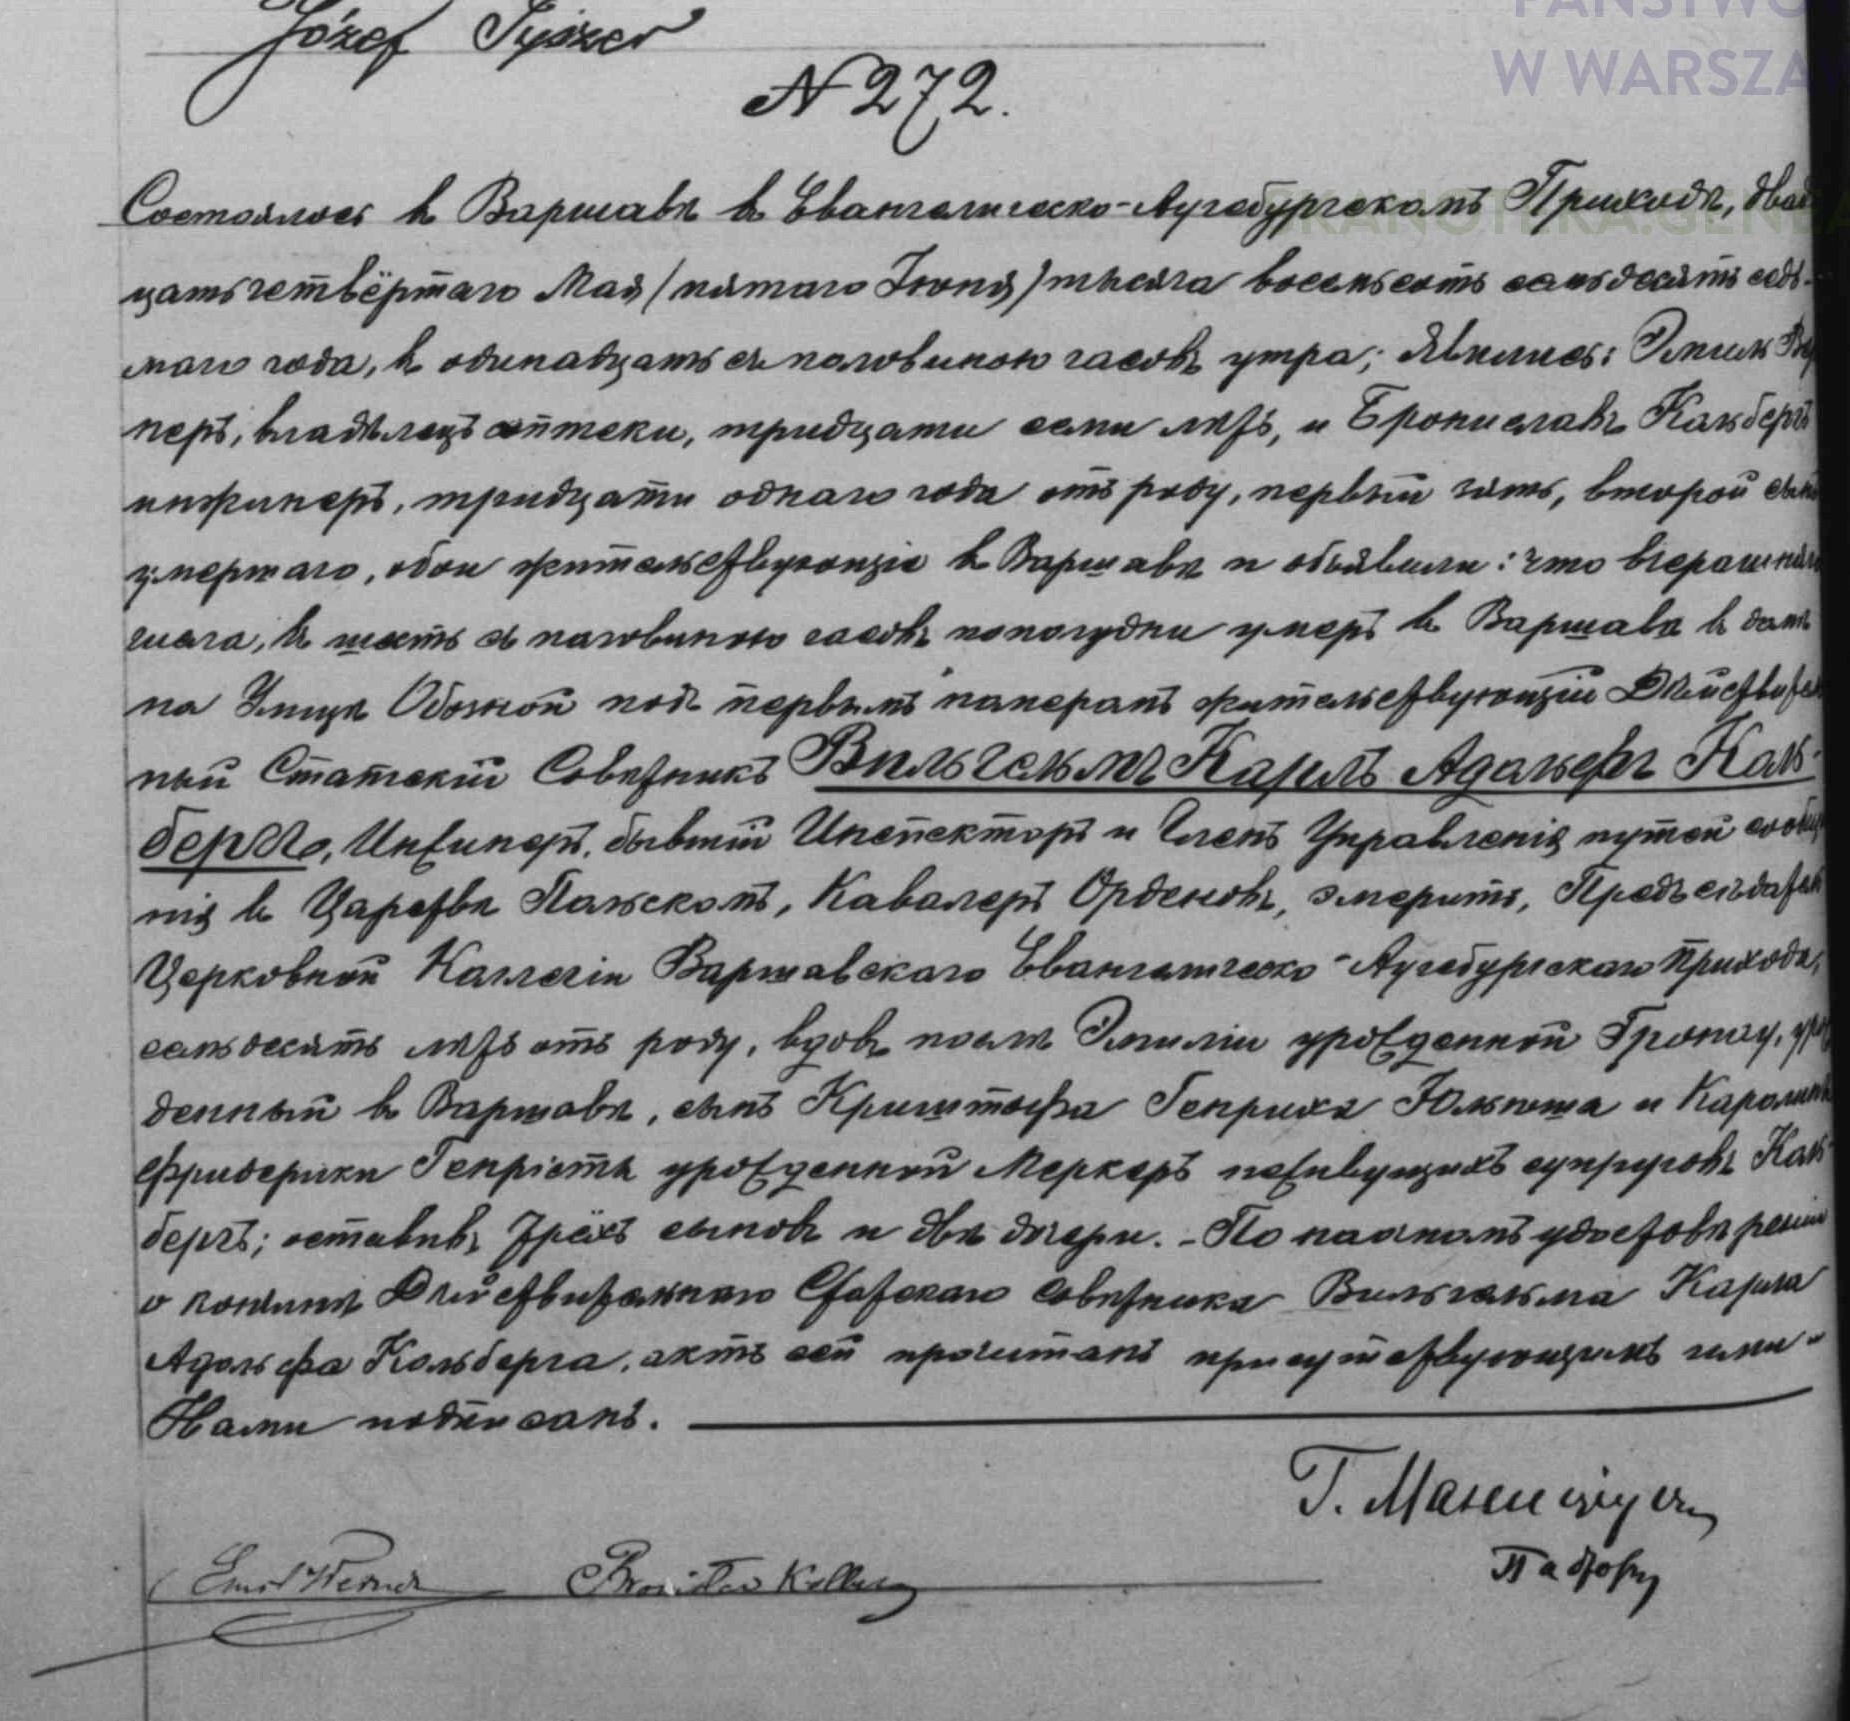 Józef Tyszer
PAŃSTWO
W WARSZA
N 272.
Состоялось въ Варшавѣ въ Евангелическо-Аугсбургскомъ Приходѣ, двад
SKANOTEKA.GENEA
цать четвёртаго Мая /пятаго Іюня/ тысяча восемьсотъ семьдесятъ седь-
маго года, въ одинадцать съ половиною часовъ утра; Явились: Эмиль Вер
неръ, владѣлецъ аптеки, тридцати семи лѣтъ, и Брониславъ Кольбергъ
инжинеръ, тридцати однаго года отъ роду, первый зять, второй сынъ
умершаго, обои жительствующіе въ Варшавѣ и объявили: что вчерашняго
числа, въ шесть съ половиною часовъ пополудни умеръ въ Варшавѣ въ домѣ
на Улицѣ Обозной подъ первымъ нумеромъ жительствующій Дѣйствитель
ный Статскій Совѣтникъ Вильгельмъ Карлъ Адольфъ Коль-
бергъ, Инжинеръ, бывшій Инспекторъ и Членъ Управленія путей сообще
нія въ Царствѣ Польскомъ, Кавалеръ Орденовъ, эмеритъ, Предсѣдатель
Церковной Коллегіи Варшавскаго Евангелическо-Аугсбургскаго Прихода,
семьдесятъ лѣтъ отъ роду, вдовъ послѣ Эмиліи урожденной Гронау, урож
денный въ Варшавѣ, сынъ Криштофа Генриха Юлиуша и Каролины
Фридерики Генріеты урожденной Меркеръ неживущихъ супруговъ Коль-
бергъ; оставивъ трёхъ сыновъ и двѣ дочери. - По наочномъ удостовѣреніи
о кончинѣ Дѣйствительнаго Статскаго Совѣтника Вильгельма Карла
Адольфа Кольберга, актъ сей прочитанъ присутствующимъ ими и
Нами подписанъ.
Пастору